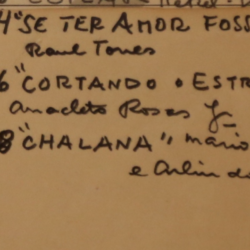 4 "SE TER AMOR FOSS
Raul Torres
6 "CORTANDO O ESTR
Anacleto Rosas Jr
8 "CHALANA", mario
e Arlin do